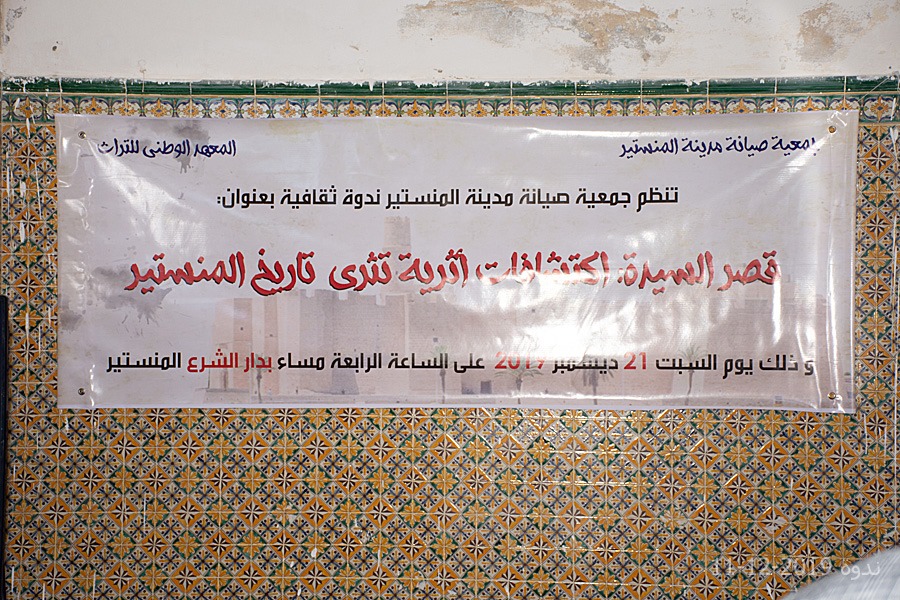 جمعية صيانة مدينة المنستير
المعهد الوطني للتراث
تنظم جمعية صيانة مدينة المنستير ندوة ثقافية بعنوان:
قصر السيدة: اكتشافات أثرية تثرى تاريخ المنستير
و ذلك يوم السبت 21 ديسمبر 2019 على الساعة الرابعة مساء بدار الشرع المنستير
ندوة 2019-12-11